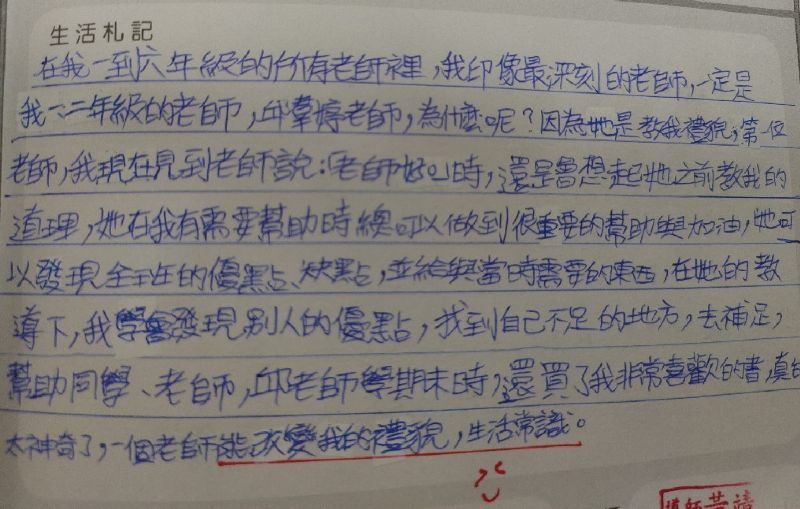 生活札記
在我一到六年級的所有老師裡，我印像最深刻的老師，一定是
我一、二年級的老師，邱韋婷老師，為什麼呢？因為她是教我禮貌，第一位
老師，我現在見到老師說：「老師好」時，還是會想起她之前教我的
道理，她在我有需要幫助時總可以做到很重要的幫助與加油，她可
以發現全班的優點、缺點，並給與當時需要的東西，在她的教
導下，我學會發現別人的優點，找到自己不足的地方，去補足，
幫助同學、老師，邱老師學期末時，還買了我非常喜歡的書，真的
太神奇了，一個老師能改變我的禮貌，生活常識。
導師黃靖